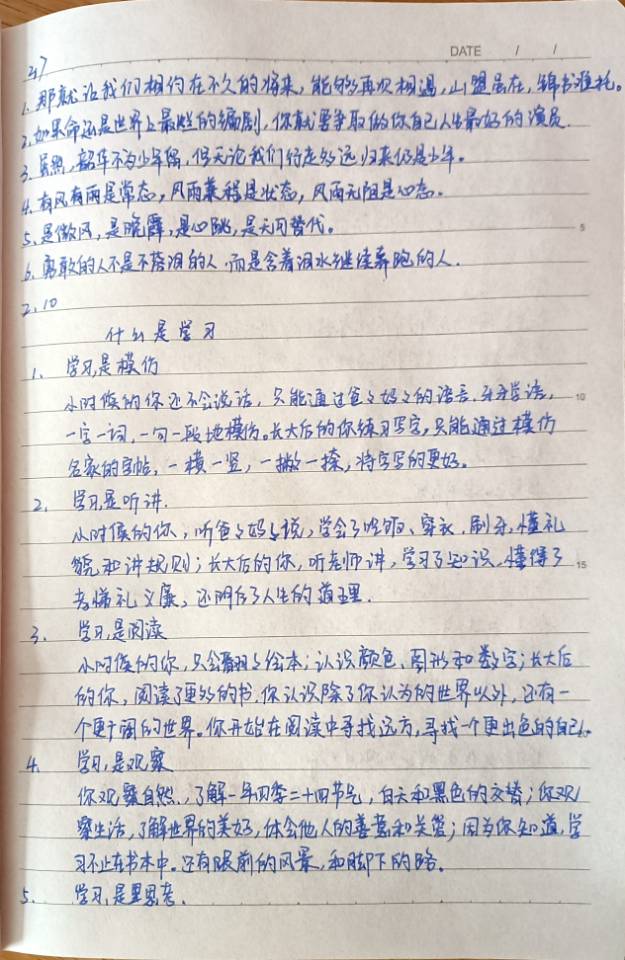 DATE / /
2.7
1. 那就让我们相约在不久的将来，能够再次相遇，山盟虽在，锦书难托。
2. 如果命运是世界上最烂的编剧，你就要争取做你自己人生最好的演员.
3. 虽然，韶华不为少年留，但无论我们行走多远，归来仍是少年。
4. 有风有雨是常态，风雨兼程是状态，风雨无阻是心态.
5. 是微风，是晚霞，是心跳，是无可替代。
6. 勇敢的人不是不落泪的人，而是含着泪水继续奔跑的人.
5
2.10
什么是学习
1. 学习是模仿
小时候的你还不会说话，只能通过爸爸妈妈的语言，牙牙学语，
10
一字一词，一句一段地模仿。长大后的你练习写字，只能通过模仿
名家的字帖，一横一竖，一撇一捺，将字写的更好。
2. 学习是听讲.
小时候的你，听爸爸妈妈说，学会了吃饭、穿衣、刷牙，懂礼
貌和讲规则；长大后的你，听老师讲，学习了知识，懂得了
15
孝悌礼义廉，还明白了人生的道理.
3. 学习是阅读
小时候的你，只会翻翻绘本；认识颜色、图形和数字；长大后
的你，阅读了更多的书，你认识除了你认为的世界以外，还有一
个更广阔的世界。你开始在阅读中寻找远方，寻找一个更出色的自己。
4. 学习是观察
你观察自然，了解一年四季二十四节气，白天和黑色的交替；你观
察生活，了解世界的美好，体会他人的善意和关爱；因为你知道，学
习不止在书本中，还有眼前的风景，和脚下的路。
5. 学习是思考.